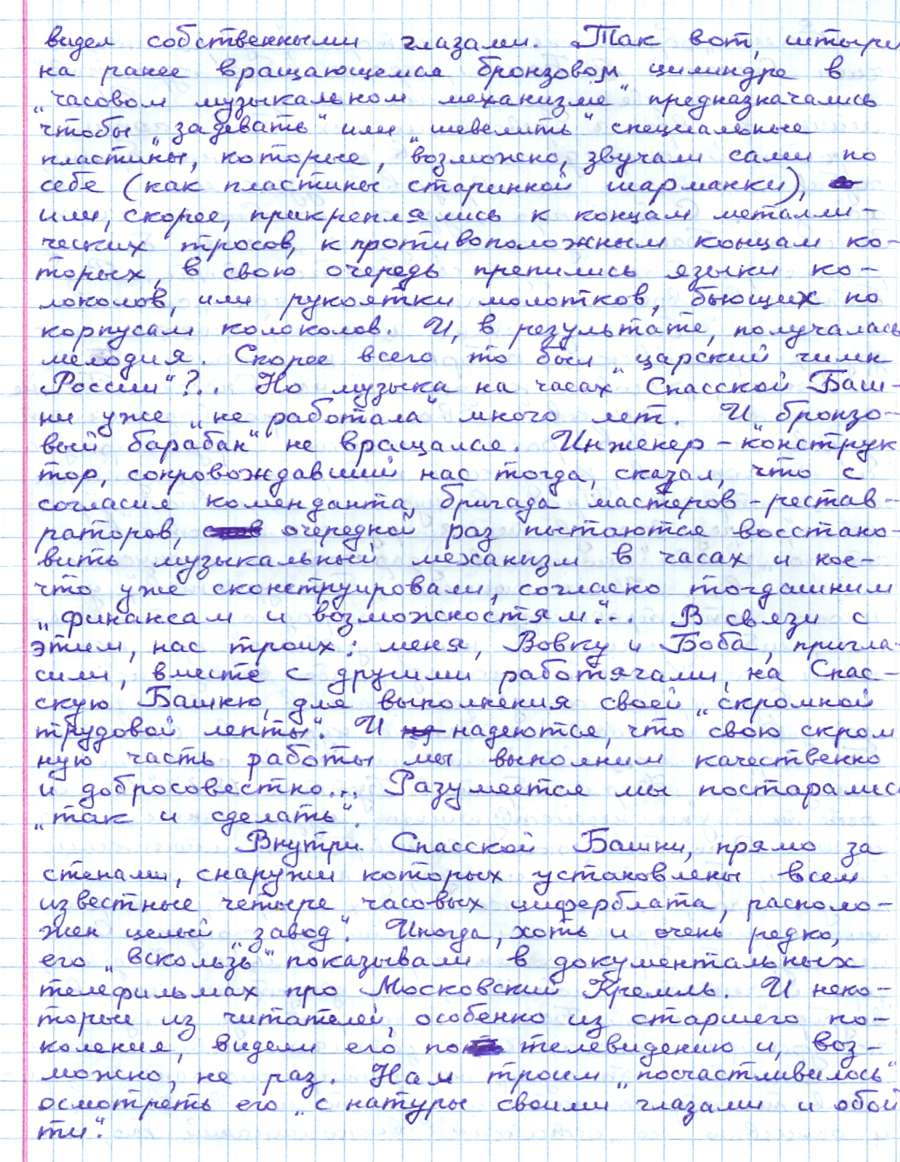 видел собственными глазами. Так вот, штыри
на ранее вращающемся бронзовом цилиндре в
„часовом музыкальном механизме" предназначались
чтобы „задевать" или „шевелить" специальные
пластины, которые, возможно, звучали сами по
себе (как пластины старинной шарманки),
или, скорее, прикреплялись к концам металли-
ческих тросов, к противоположным концам ко-
торых, в свою очередь крепились языки ко-
локолов, или рукоятки молотков, бьющих по
корпусам колоколов. И, в результате, получалась
мелодия. Скорее всего то был „царский гимн
России"?.. Но музыка на часах Спасской Баш-
ни уже „не работала" много лет. И „бронзо-
вый барабан" не вращался. Инженер-конструк
тор, сопровождавший нас тогда, сказал, что с
согласия коменданта, бригада мастеров-рестав-
раторов, очередной раз пытаются восстано-
вить музыкальный механизм в часах и кое-
что уже сконструировали, согласно тогдашним
„финансам и возможностям"... В связи с
этим, нас троих: меня, Вовку и Боба, пригла-
сили, вместе с другими работягами, на Спас-
скую Башню, для выполнения своей „скромной
трудовой лепты". И надеются, что свою скром
ную часть работы мы выполним качественно
и добросовестно... Разумеется мы постарались
„так и сделать".
Внутри Спасской Башни, прямо за
стенами, снаружи которых установлены всем
известные четыре часовых циферблата, располо-
жен целый „завод". Иногда, хоть и очень редко,
его „вскользь" показывали в документальных
телефильмах про Московский Кремль. И неко-
торые из читателей, особенно из старшего по-
коления, видели его по телевидению и, воз-
можно, не раз. Нам троим „посчастливилось"
осмотреть его „с натуры своими глазами и обой
ти".